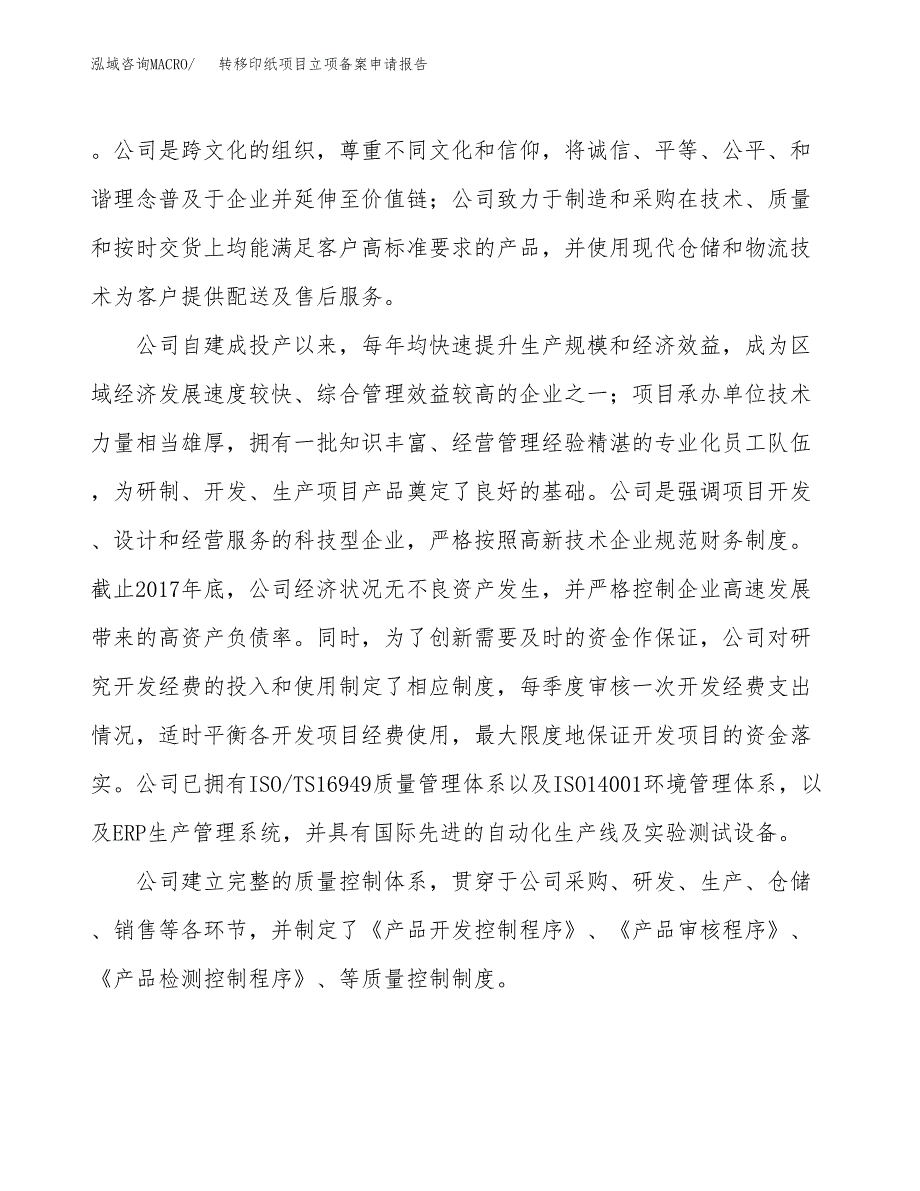 泓域咨询MACRO/ 转移印纸项目立项备案申请报告
。公司是跨文化的组织，尊重不同文化和信仰，将诚信、平等、公平、和
谐理念普及于企业并延伸至价值链；公司致力于制造和采购在技术、质量
和按时交货上均能满足客户高标准要求的产品，并使用现代仓储和物流技
术为客户提供配送及售后服务。
公司自建成投产以来，每年均快速提升生产规模和经济效益，成为区
域经济发展速度较快、综合管理效益较高的企业之一；项目承办单位技术
力量相当雄厚，拥有一批知识丰富、经营管理经验精湛的专业化员工队伍
，为研制、开发、生产项目产品奠定了良好的基础。公司是强调项目开发
、设计和经营服务的科技型企业，严格按照高新技术企业规范财务制度。
截止2017年底，公司经济状况无不良资产发生，并严格控制企业高速发展
带来的高资产负债率。同时，为了创新需要及时的资金作保证，公司对研
究开发经费的投入和使用制定了相应制度，每季度审核一次开发经费支出
情况，适时平衡各开发项目经费使用，最大限度地保证开发项目的资金落
实。公司已拥有ISO/TS16949质量管理体系以及ISO14001环境管理体系，以
及ERP生产管理系统，并具有国际先进的自动化生产线及实验测试设备。
公司建立完整的质量控制体系，贯穿于公司采购、研发、生产、仓储
、销售等各环节，并制定了《产品开发控制程序》、《产品审核程序》、
《产品检测控制程序》、等质量控制制度。